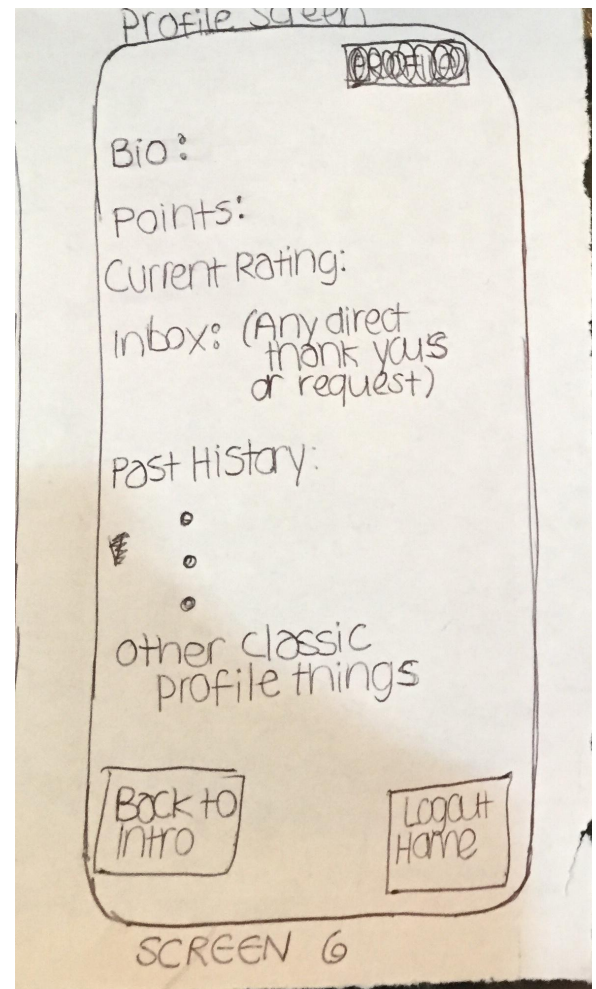 Profile Screen
Bio:
Points:
Current Rating:
Inbox: (Any direct
thank you's
or request)
Past History:
other classic
profile things
Back to
Intro
Logout
Home
SCREEN 6